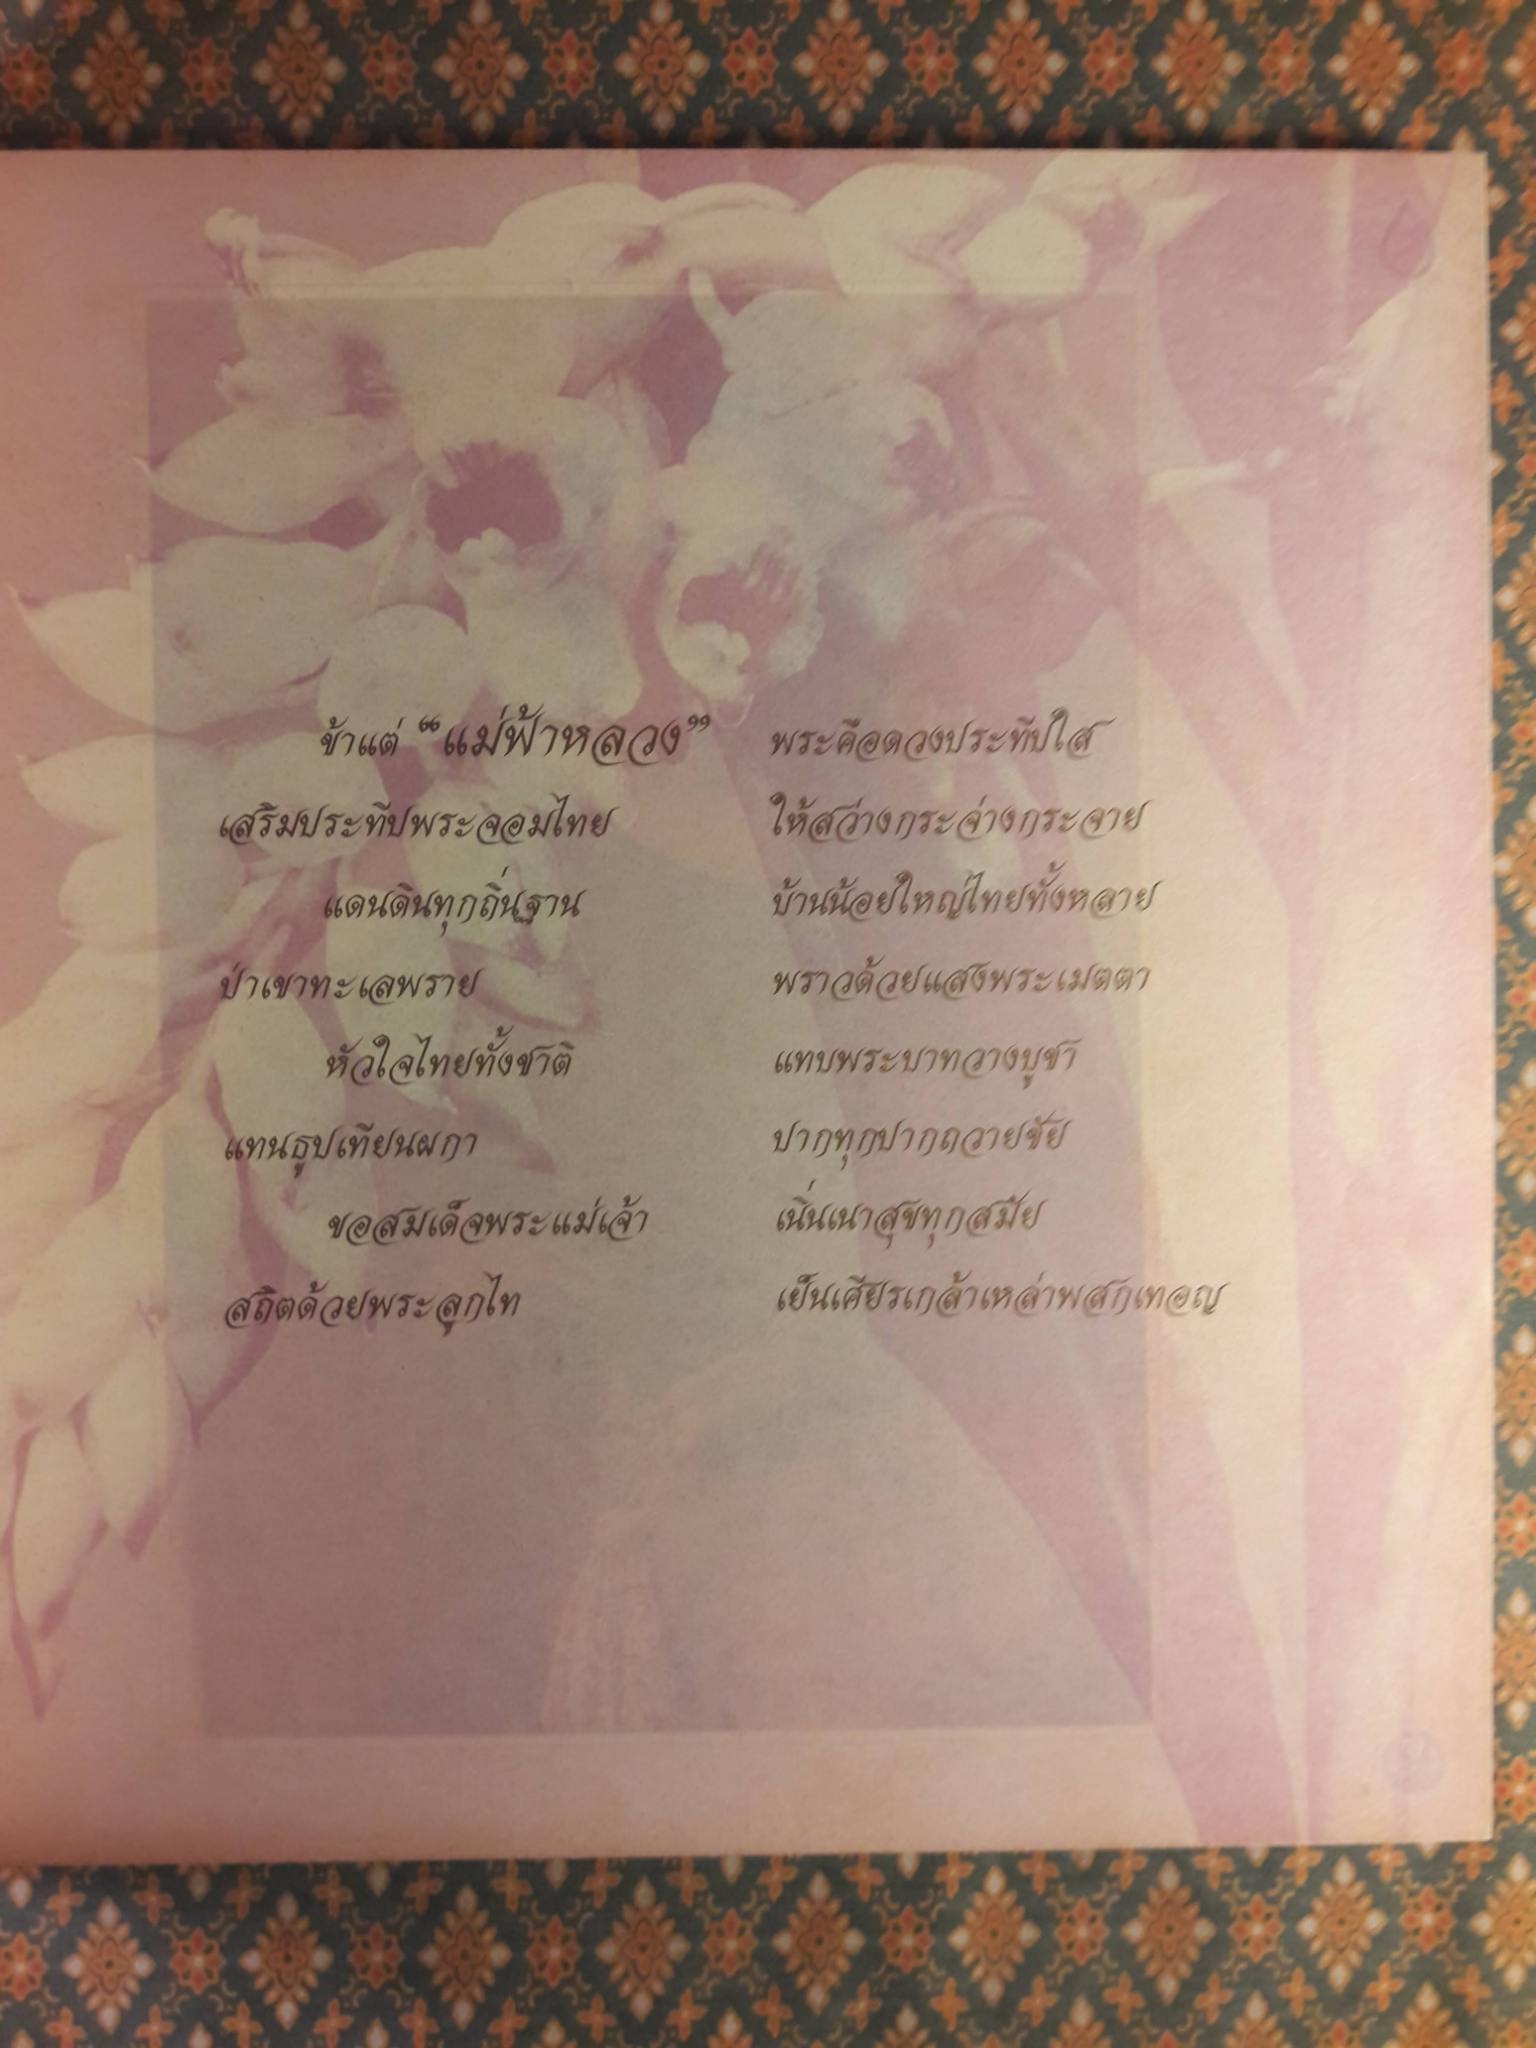 ข้าแต่ “แม่ฟ้าหลวง” พระคือดวงประทีปใส
เสริมประทีปพระจอมไทย ให้สว่างกระจ่างกระจาย
แดนดินทุกถิ่นฐาน บ้านน้อยใหญ่ไทยทั้งหลาย
ป่าเขาทะเลพราย พราวด้วยแสงพระเมตตา
หัวใจไทยทั้งชาติ แทบพระบาทวางบูชา
แทนธูปเทียนผกา ปากทุกปากถวายชัย
ขอสมเด็จพระแม่เจ้า เนิ่นเนาสุขทุกสมัย
สถิตด้วยพระลูกไท เย็นเศียรเกล้าเหล่าพสกเทอญ